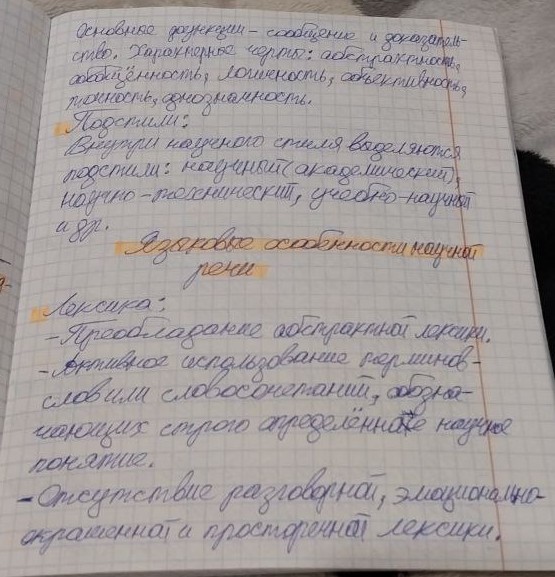 Основные функции – сообщение и доказатель-
ство. Характерные черты: абстрактность,
обобщённость, логичность, объективность,
точность, однозначность.
Подстили:
Внутри научного стиля выделяются
подстили: научный (академический),
научно-технический, учебно-научный
и др.
Языковые особенности научной
речи
Лексика:
- Преобладание абстрактной лексики.
- Активное использование терминов-
слов или словосочетаний, обозна-
чающих строго определённое научное
понятие.
- Отсутствие разговорной, эмоционально-
окрашенной и просторечной лексики.